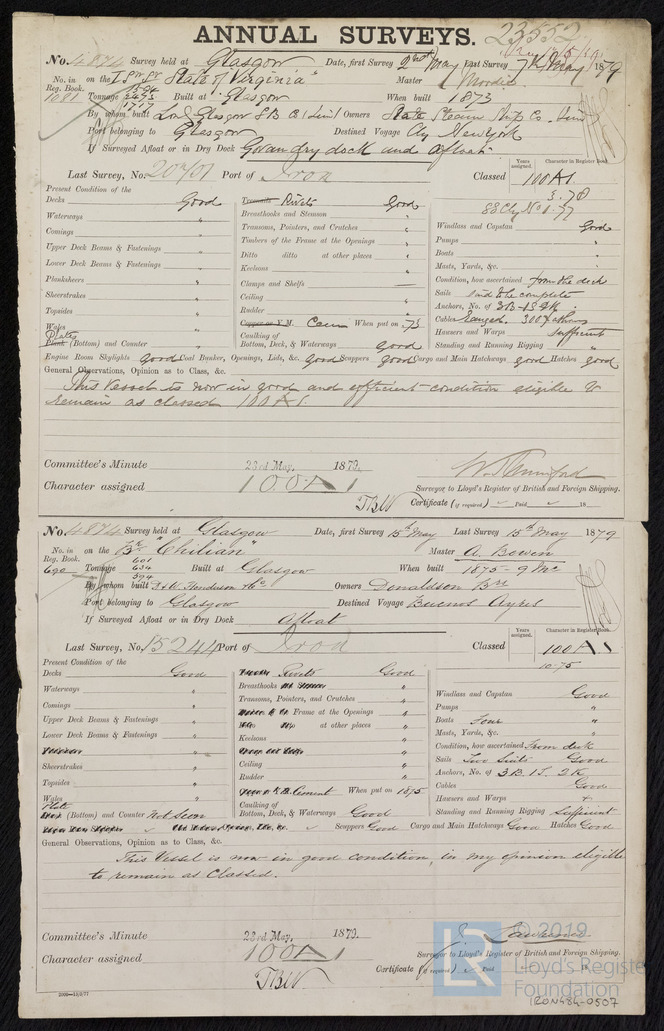 ANNUAL SURVEYS. 23552
No. 4874 Survey held at Glasgow Date, first Survey May Last Survey 7th May 1879
No. in on the I Sw Sr "State of Virginia" Master Moodie
Reg. Book. 1081 Tonnage 2473 1717 Built at Glasgow When built 1873
By whom built Lon & Glasgow S B Co (Lim) Owners State Steam Ship Co. Lim
Port belonging to Glasgow Destined Voyage New York
If Surveyed Afloat or in Dry Dock Govan dry dock and afloat
Last Survey, No. Port of Iron Classed Years assigned. Character in Register Book 100A1
3.78
SS Cly No 1.77
Present Condition of the
Decks Good Rivets Good
Waterways " Breasthooks and Stemson " Windlass and Capstan Good
Comings " Transoms, Pointers, and Crutches " Pumps "
Upper Deck Beams & Fastenings " Timbers of the Frame at the Openings " Boats "
Lower Deck Beams & Fastenings " Ditto ditto at other places " Masts, Yards, &c. "
Planksheers " Keelsons " Condition, how ascertained from the deck
Sheerstrakes " Clamps and Shelfs — Sails said to be complete
Topsides " Ceiling " Anchors, No. of 3B.1S.2K.
Wales " Rudder " Cables Ranged. 300 fathms
Plates (Bottom) and Counter " Copper or Y.M. Cem When put on 73 Hawsers and Warps sufficient
Caulking of Bottom, Deck, & Waterways good Standing and Running Rigging "
Engine Room Skylights good Coal Bunker, Openings, Lids, &c. good Scuppers good Cargo and Main Hatchways good Hatches good
General Observations, Opinion as to Class, &c.
This Vessel is now in good and efficient condition eligible to
remain as classed 100A1.
Committee's Minute 23rd May, 1879.
Character assigned 100A1 Surveyor to Lloyd's Register of British and Foreign Shipping.
TBW Certificate (if required) Paid 18
No. 4874 Survey held at Glasgow Date, first Survey 15th May Last Survey 15th May 1879
No. in on the Bk "Chilian Master A. Bowen
Reg. Book. 690 Tonnage 601 634 594 Built at Glasgow When built 1875 - 9 Mo
By whom built D & W. Henderson & Co Owners Donaldson Brs
Port belonging to Glasgow Destined Voyage Buenos Ayres
If Surveyed Afloat or in Dry Dock Afloat
Last Survey, No. 15244 Port of Iron Classed Years assigned. Character in Register Book. 100A1
10-75
Present Condition of the
Decks Good Rivets Good
Waterways " Breasthooks " Windlass and Capstan Good
Comings " Transoms, Pointers, and Crutches " Pumps "
Upper Deck Beams & Fastenings " Frame at the Openings " Boats Four "
Lower Deck Beams & Fastenings " at other places " Masts, Yards, &c. "
Keelsons " Condition, how ascertained From deck
Sheerstrakes " Sails Two Suits Good
Topsides " Ceiling " Anchors, No. of 3B.1S.2K
Wales " Rudder " Cables Good
Plate (Bottom) and Counter Not Seen Cement When put on 1875 Hawsers and Warps
Caulking of Bottom, Deck, & Waterways Good Standing and Running Rigging Sufficient
Scuppers Good Cargo and Main Hatchways Good Hatches Good
General Observations, Opinion as to Class, &c.
This Vessel is now in good condition, in my opinion eligible
to remain as Classed.
Committee's Minute 23rd May, 1879.
Character assigned 100A1 Surveyor to Lloyd's Register of British and Foreign Shipping.
TBW Certificate (if required) Paid
© 2019
LR Lloyd's Register
Foundation
IRON484-0507